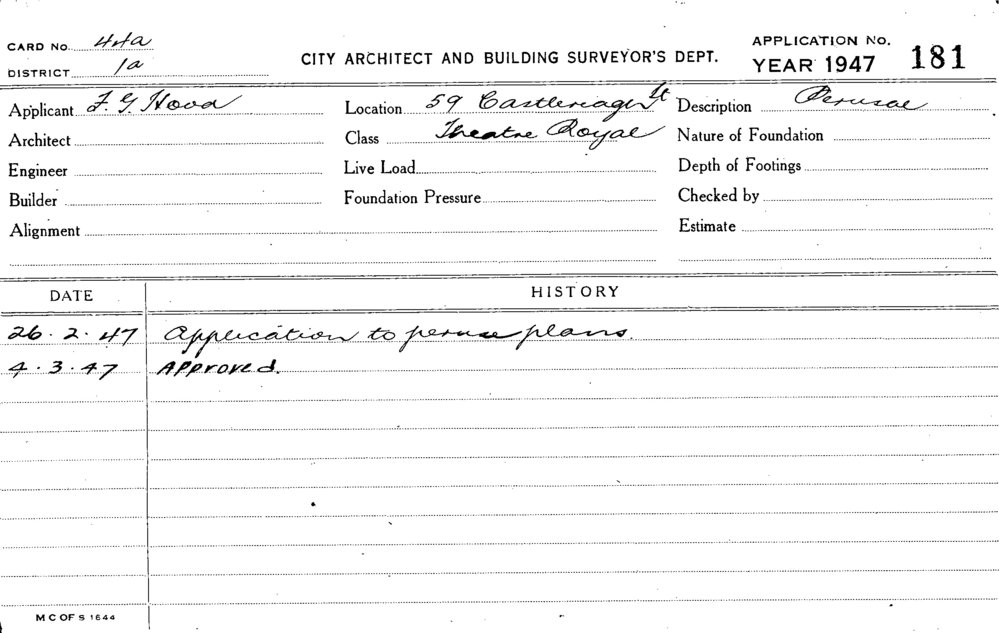 CARD No. 44a
DISTRICT 1a
CITY ARCHITECT AND BUILDING SURVEYOR'S DEPT.
APPLICATION No.
YEAR 1947 181
Applicant F. G. Hood Location 59 Castlereagh St Description Perusal
Architect Class Theatre Royal Nature of Foundation
Engineer Live Load Depth of Footings
Builder Foundation Pressure Checked by
Alignment Estimate
DATE HISTORY
26.2.47 Application to peruse plans.
4.3.47 Approved.
M C OF S 1644